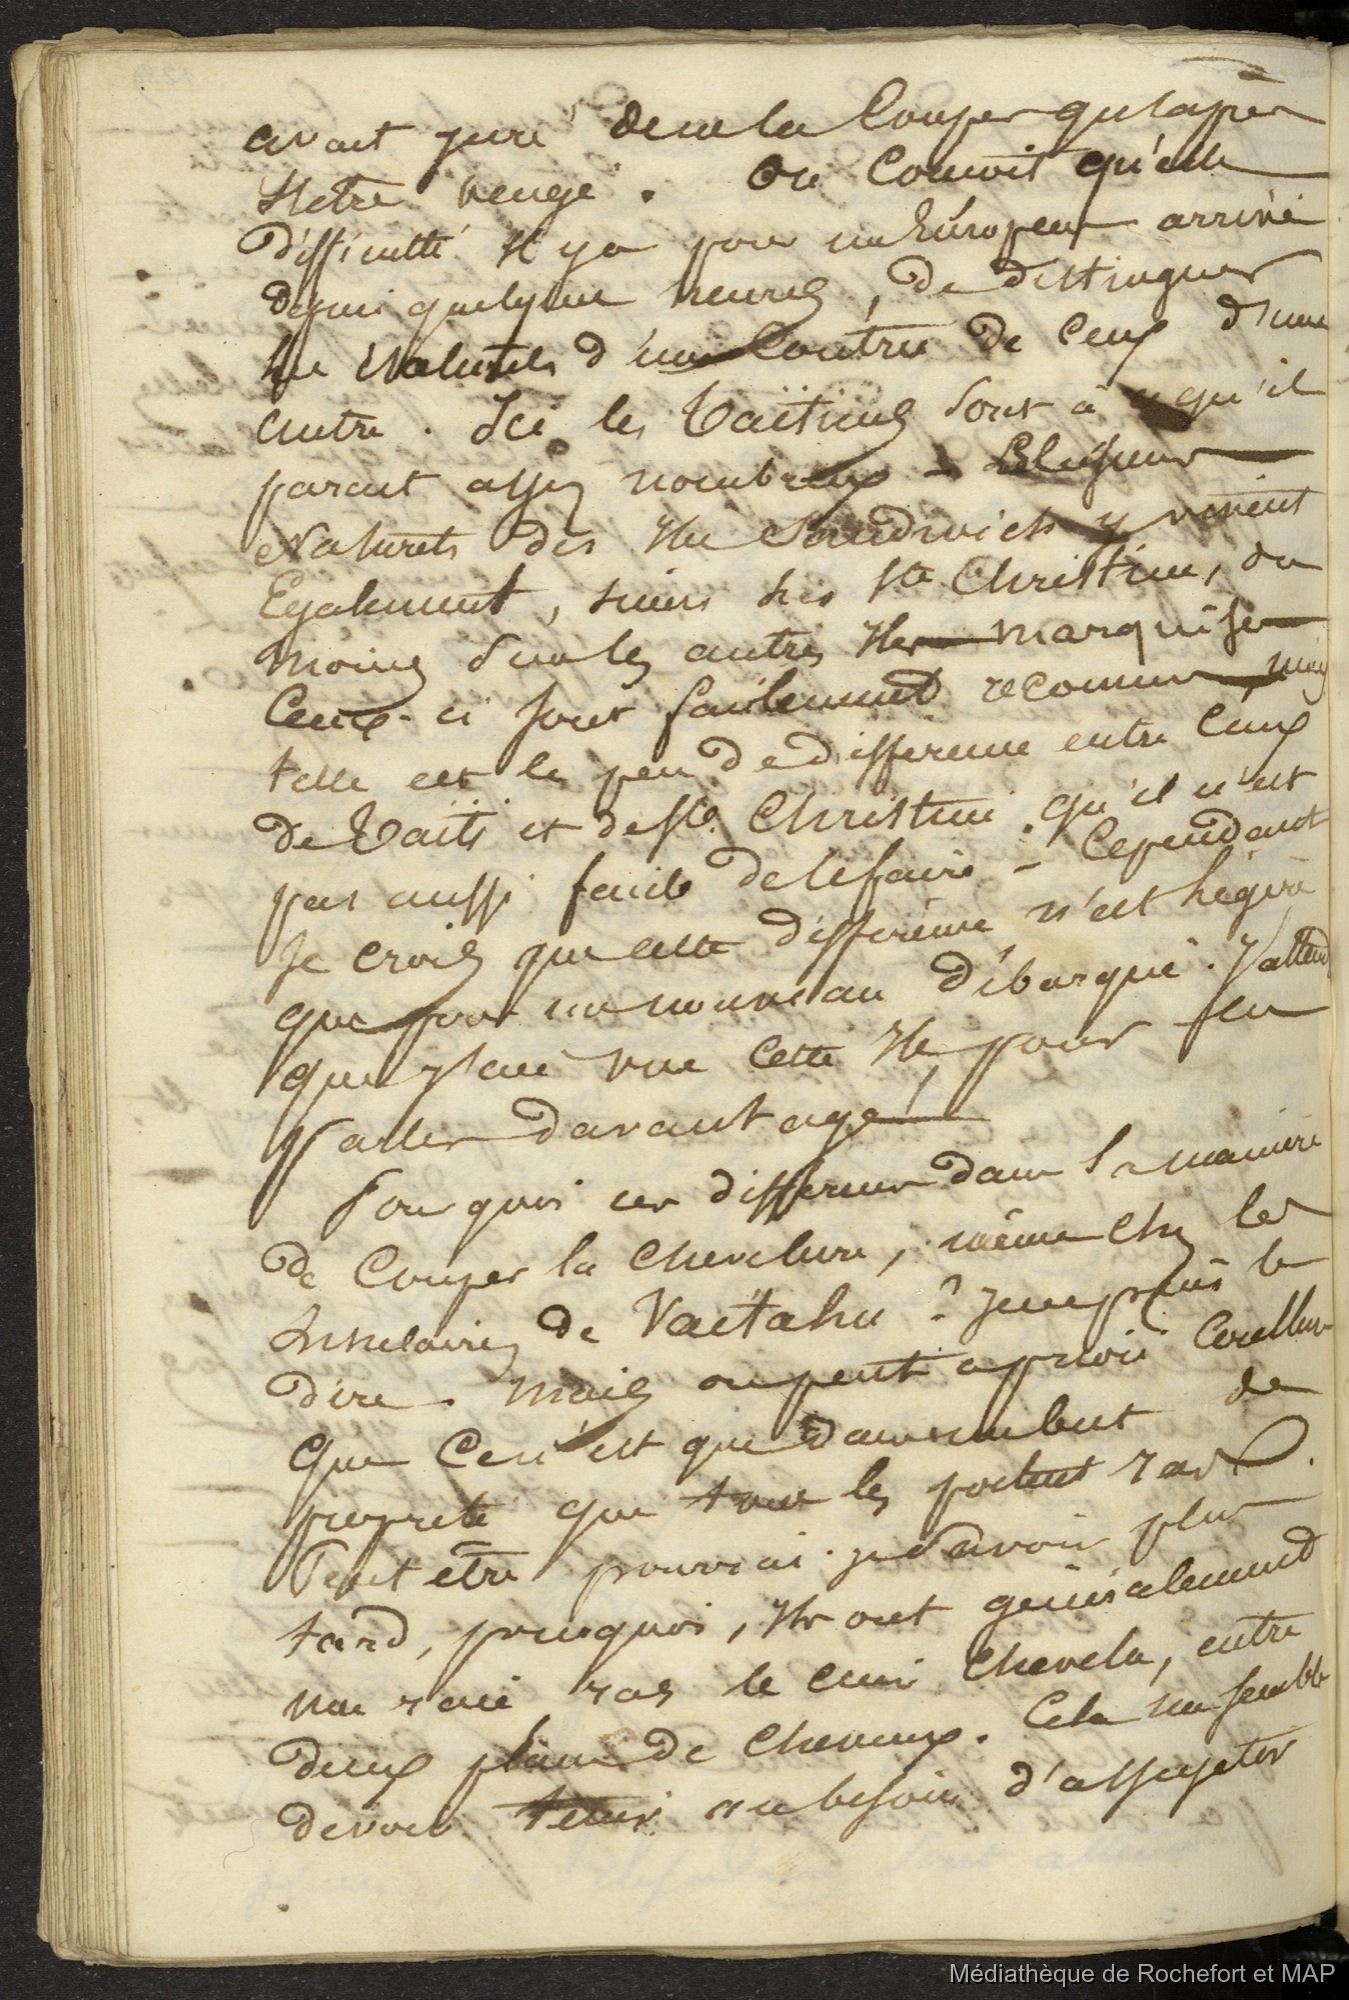 avait juré de ne la Couper qu'après
s'être vengé. On Connoit qu'elle
difficulté il y a pour un Européen arrivé
depuis quelques heures, de distinguer
les Naturels d'une Contrée de Ceux d'une
autre. Ici les Taïtiens sont à ce qu'il
parait assez nombreux - Plusieurs
Naturels des Iles Sandwich y vinrent
Egalement, sinon à Ste Christine, du
moins sur les autres Iles Marquises
Ceux-ci sont facilement reconnus, mais
telle est le peu de difference entre Ceux
de Taïti et de Ste Christine qu'il n'est
pas aussi facile de le faire - Cependant
Je Crois que cette différence n'est légère
que pour un nouveau débarqué. J'attend
que j'aie vue Cette Ile, pour en
parler davantage.
Pourquoi ces differences dans la manière
de Couper la Chevelure, même chez les
Insulaires de Vaïtahu ? Je ne puis le
dire. Mais on peut a priori
que Ce n'est que dans un but de
propreté que tous les portent ras.
Peut être pourrai-je savoir plus
tard, pourquoi, Ils ont généralement
une raie ras le cuir Chevelu, entre
deux de Cheveux. Cela me semble
devoir tenir au besoin d'assujetir
Médiathèque de Rochefort et MAP